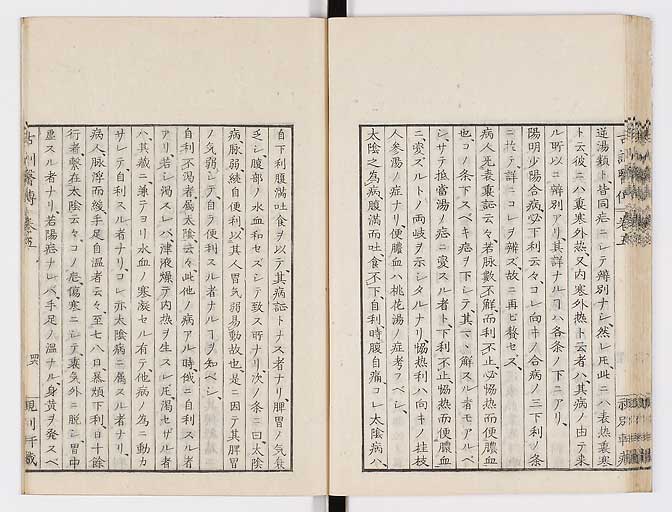 逆湯類ト皆同症ニシテ辨別ナシ然レ𪜈此ニハ表熱裏寒
ト云彼ニハ裏寒外熱又内寒外熱ト云者ハ其病ノ由テ来
ル所以ニ辨別アリ其詳ナルヿハ各条ノ下ニアリ
陽明少陽合病必下利云々コレ向キノ合病ノ三下利ノ条
ニ於テ詳ニコレヲ辨ズ故ニ再ビ贅セズ
病人无表裏証云々若脉數不解而利不止必恊熱而便膿血
也コノ条下スベキ症ヲ下シテ其マヽ解スル者モアルベ
シサテ抵當湯ノ症ニ変スル者ト下利不止恊熱而便膿血
ニ変ズルトノ両岐ヲ示シタルナリ恊熱利ハ向キノ桂枝
人参湯ノ症ナリ便膿血ハ桃花湯ノ症考フベシ
太陰之為病腹満而吐食不下自利時腹自痛コレ太陰病ハ
自下利腹満吐食ヲ以テ其病証トナス者ナリ脾胃ノ気衰
乏シ腹部ノ水血和セズシテ致ス所ナリ次ノ条ニ曰太陰
病脉弱続自便利以其人胃気弱易動故也是ニ因テ其脾胃
ノ気弱シテ自ラ便利スル者ナルヿヲ知ベシ
自利不渇者属太陰云々此他ノ病アル時俄ニ自利スル者
アリ若シ渇スレバ津液燥テ内熱ヲ生スレ𪜈渇セザル者
ハ其蔵ニ兼テヨリ水血ノ寒凝セル有テ他病ノ為ニ動カ
サレテ自利スル者ナリコレ亦太陰病ニ属スル者ナリ
病人脉浮而緩手足自温者云々至七八日暴煩下利日十餘
行者繫在太陰云々コノ症傷寒ニシテ裏気外ニ脱シ胃中
虚スル者ナリ若陽症ナレバ手足ノ温ナル身黄ヲ発スベ
巻五
四六